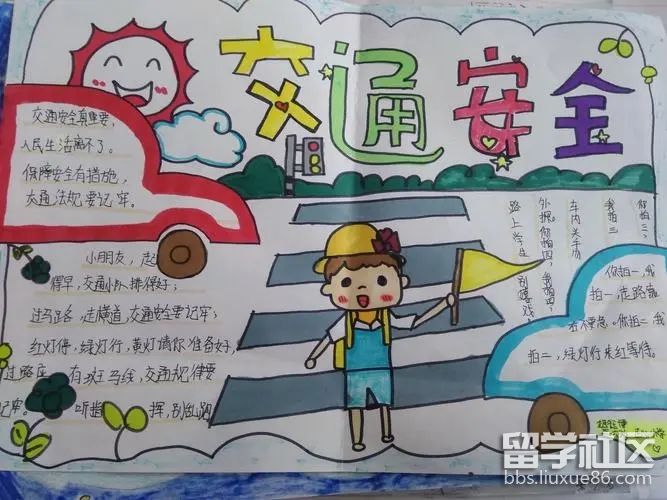 交通安全
交通安全真重要,
人民生活离不了。
保障安全有措施,
交通法规要记牢。
小朋友,起
得早,交通小队排得好;
过马路,走横道,交通安全要记牢;
红灯停,绿灯行,黄灯请你准备好,
过路口 有斑马线,交通规律要
记牢。 听指 挥,别乱跑
你拍三,
我拍三
车内关手勿
外探。你拍四,我拍四,
路上学生 别嬉戏
你拍一,我
拍一,走路靠
右不要急。你拍二 我
拍二,绿灯行来红等待。
留学社区
bbs.liuxue86.com